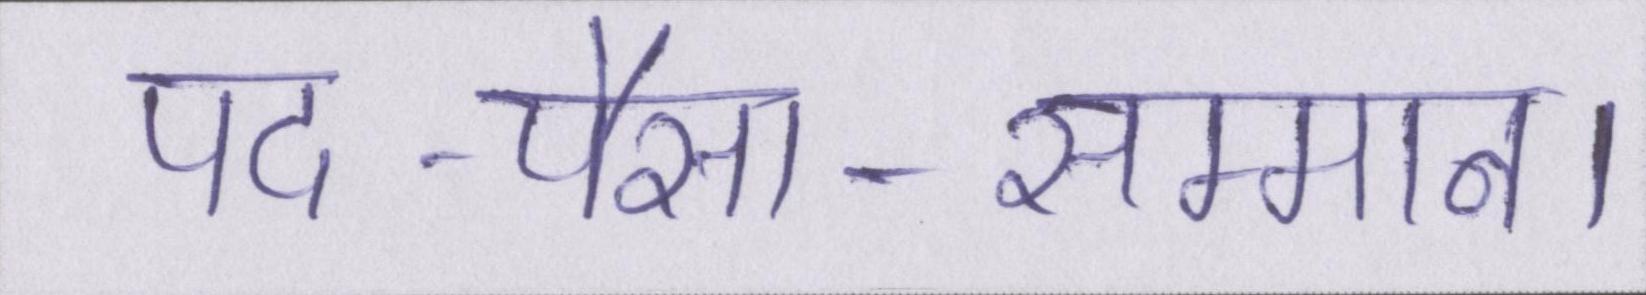 पद -पैसा - सम्मान।